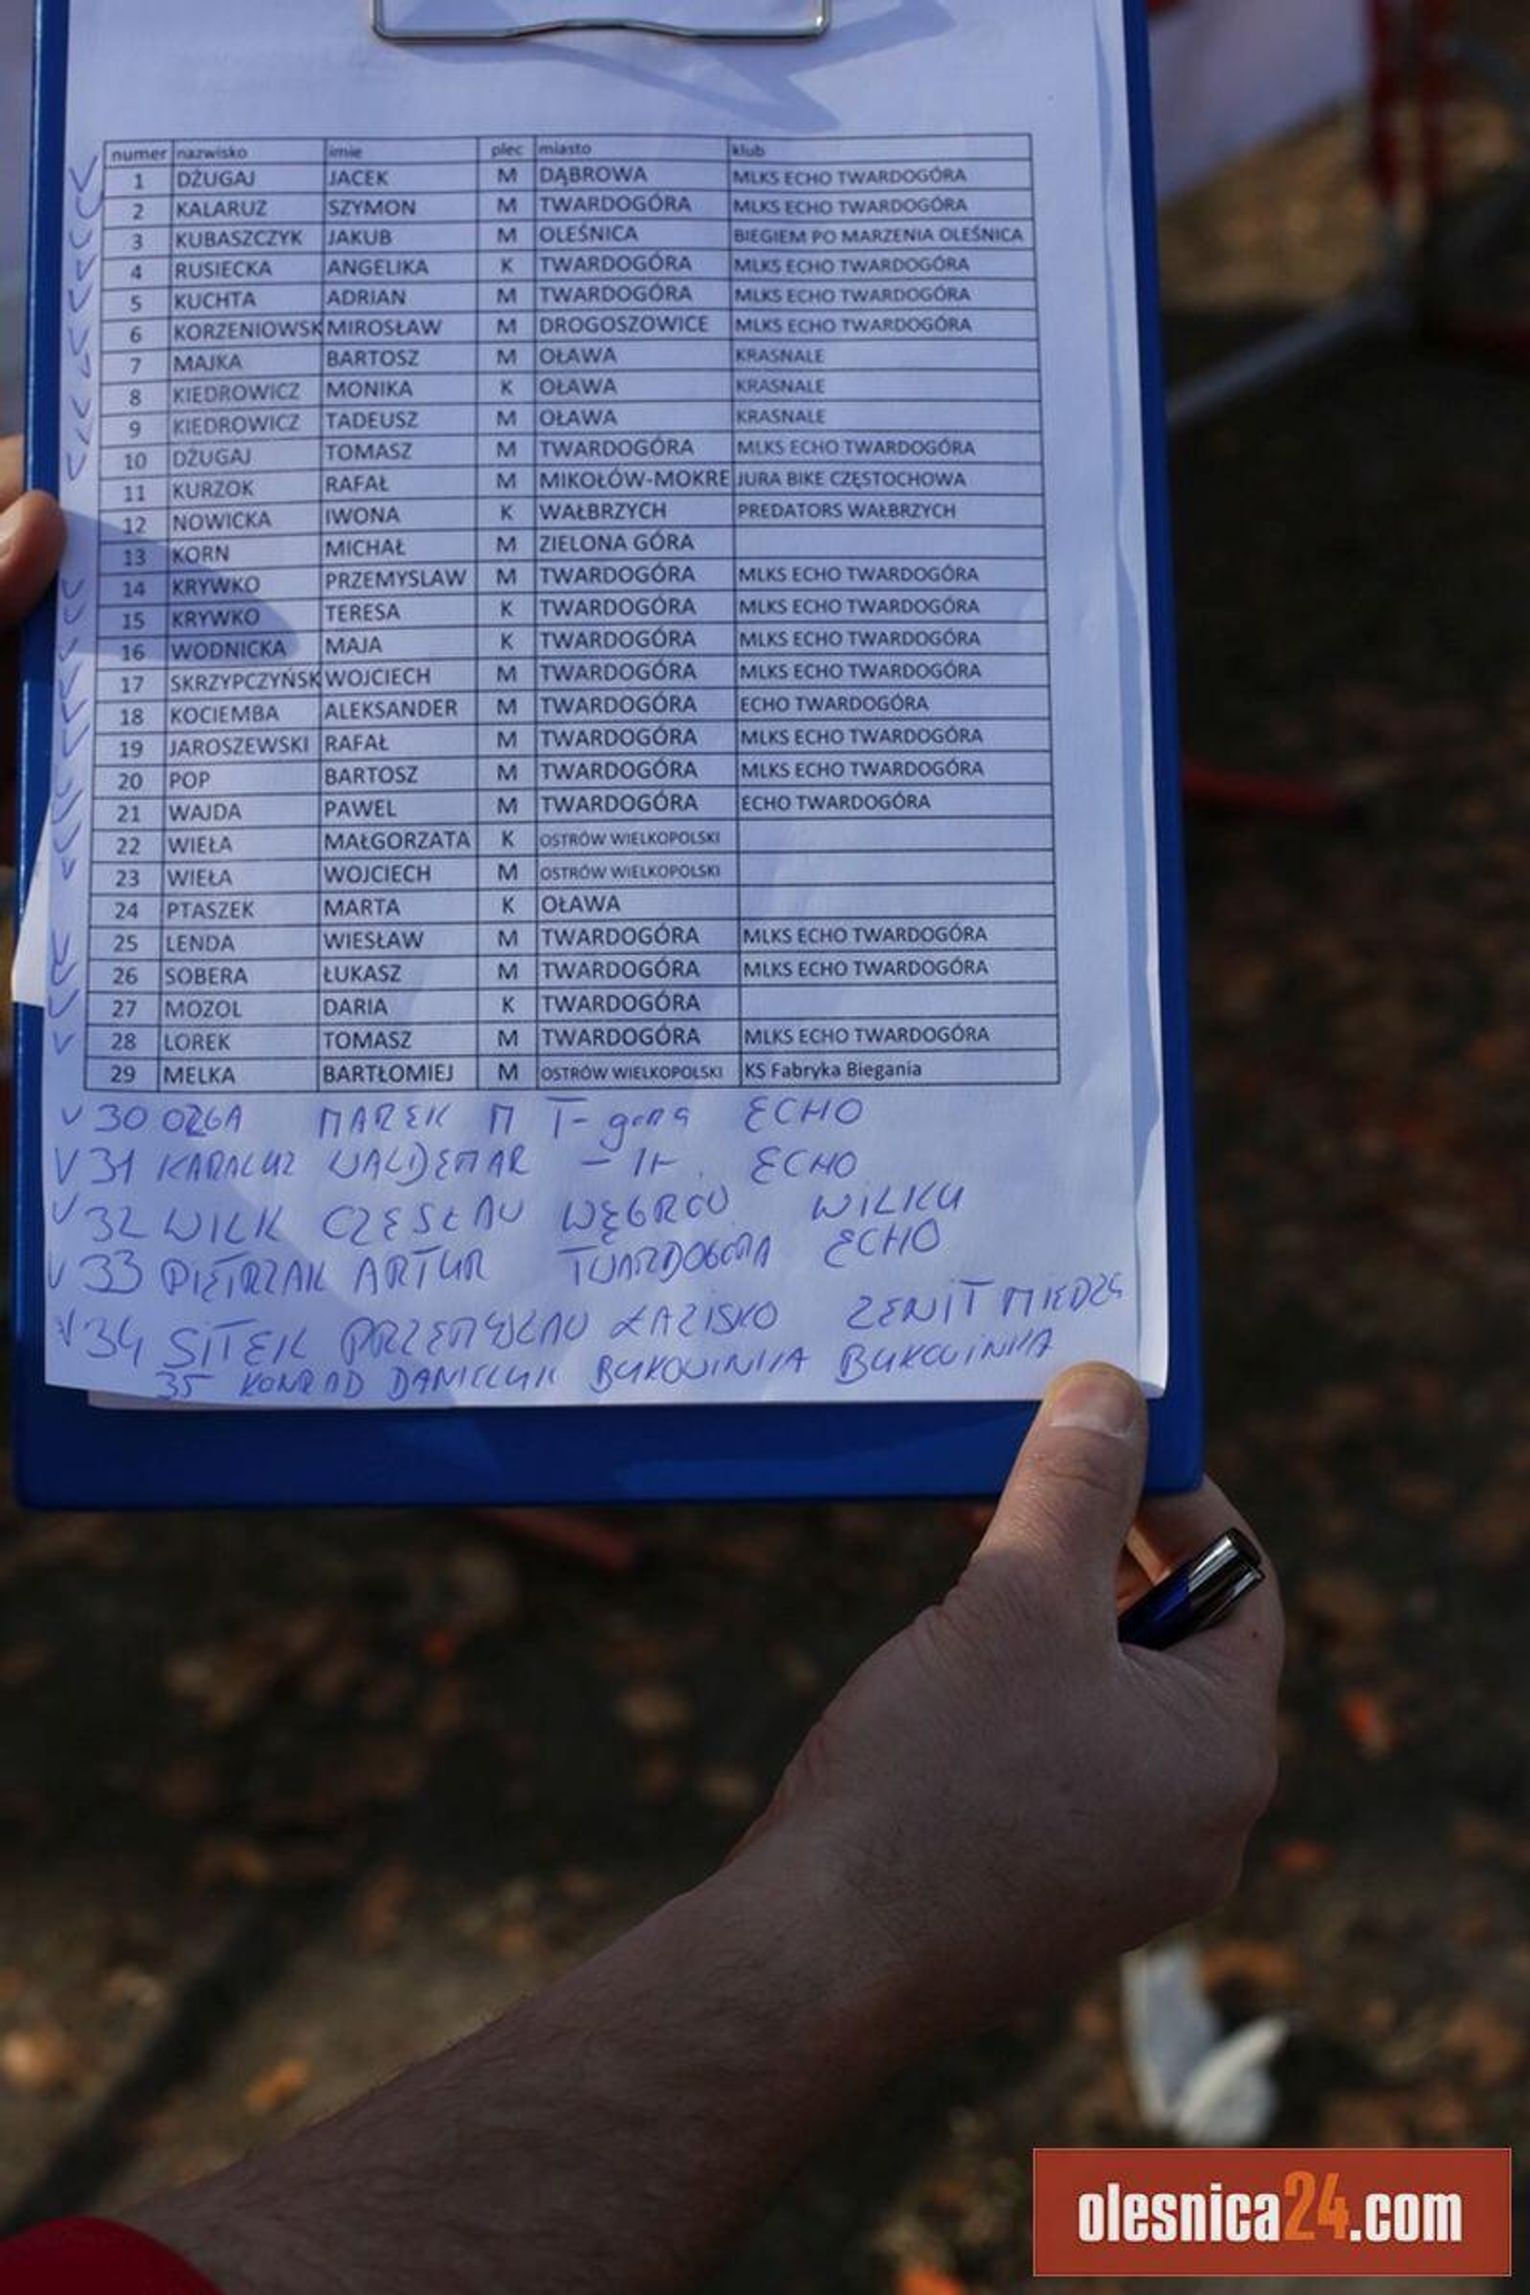 numer nazwisko imie plec miasto klub
1 DŻUGAJ JACEK M DĄBROWA MLKS ECHO TWARDOGÓRA
2 KALARUZ SZYMON M TWARDOGÓRA MLKS ECHO TWARDOGÓRA
3 KUBASZCZYK JAKUB M OLEŚNICA BIEGIEM PO MARZENIA OLEŚNICA
4 RUSIECKA ANGELIKA K TWARDOGÓRA MLKS ECHO TWARDOGÓRA
5 KUCHTA ADRIAN M TWARDOGÓRA MLKS ECHO TWARDOGÓRA
6 KORZENIOWSK MIROSŁAW M DROGOSZOWICE MLKS ECHO TWARDOGÓRA
7 MAJKA BARTOSZ M OŁAWA KRASNALE
8 KIEDROWICZ MONIKA K OŁAWA KRASNALE
9 KIEDROWICZ TADEUSZ M OŁAWA KRASNALE
10 DŻUGAJ TOMASZ M TWARDOGÓRA MLKS ECHO TWARDOGÓRA
11 KURZOK RAFAŁ M MIKOŁÓW-MOKRE JURA BIKE CZĘSTOCHOWA
12 NOWICKA IWONA K WAŁBRZYCH PREDATORS WAŁBRZYCH
13 KORN MICHAŁ M ZIELONA GÓRA
14 KRYWKO PRZEMYSLAW M TWARDOGÓRA MLKS ECHO TWARDOGÓRA
15 KRYWKO TERESA K TWARDOGÓRA MLKS ECHO TWARDOGÓRA
16 WODNICKA MAJA K TWARDOGÓRA MLKS ECHO TWARDOGÓRA
17 SKRZYPCZYŃSK WOJCIECH M TWARDOGÓRA MLKS ECHO TWARDOGÓRA
18 KOCIEMBA ALEKSANDER M TWARDOGÓRA ECHO TWARDOGÓRA
19 JAROSZEWSKI RAFAŁ M TWARDOGÓRA MLKS ECHO TWARDOGÓRA
20 POP BARTOSZ M TWARDOGÓRA MLKS ECHO TWARDOGÓRA
21 WAJDA PAWEL M TWARDOGÓRA ECHO TWARDOGÓRA
22 WIEŁA MAŁGORZATA K OSTRÓW WIELKOPOLSKI
23 WIEŁA WOJCIECH M OSTRÓW WIELKOPOLSKI
24 PTASZEK MARTA K OŁAWA
25 LENDA WIESŁAW M TWARDOGÓRA MLKS ECHO TWARDOGÓRA
26 SOBERA ŁUKASZ M TWARDOGÓRA MLKS ECHO TWARDOGÓRA
27 MOZOL DARIA K TWARDOGÓRA
28 LOREK TOMASZ M TWARDOGÓRA MLKS ECHO TWARDOGÓRA
29 MELKA BARTŁOMIEJ M OSTRÓW WIELKOPOLSKI KS Fabryka Biegania
30 OZGA MAREK M T-góra ECHO
31 KARALUZ WALDEMAR -11- ECHO
32 WILK CZESŁAW WĘGRÓW WILKU
33 PIETRZAK ARTUR TWARDOGÓRA ECHO
34 SITEK PRZEMYSŁAW ŁAZISKO ZENIT
35 KONRAD DANIELUK BUKOWINKA BUKOWINKA
olesnica24.com